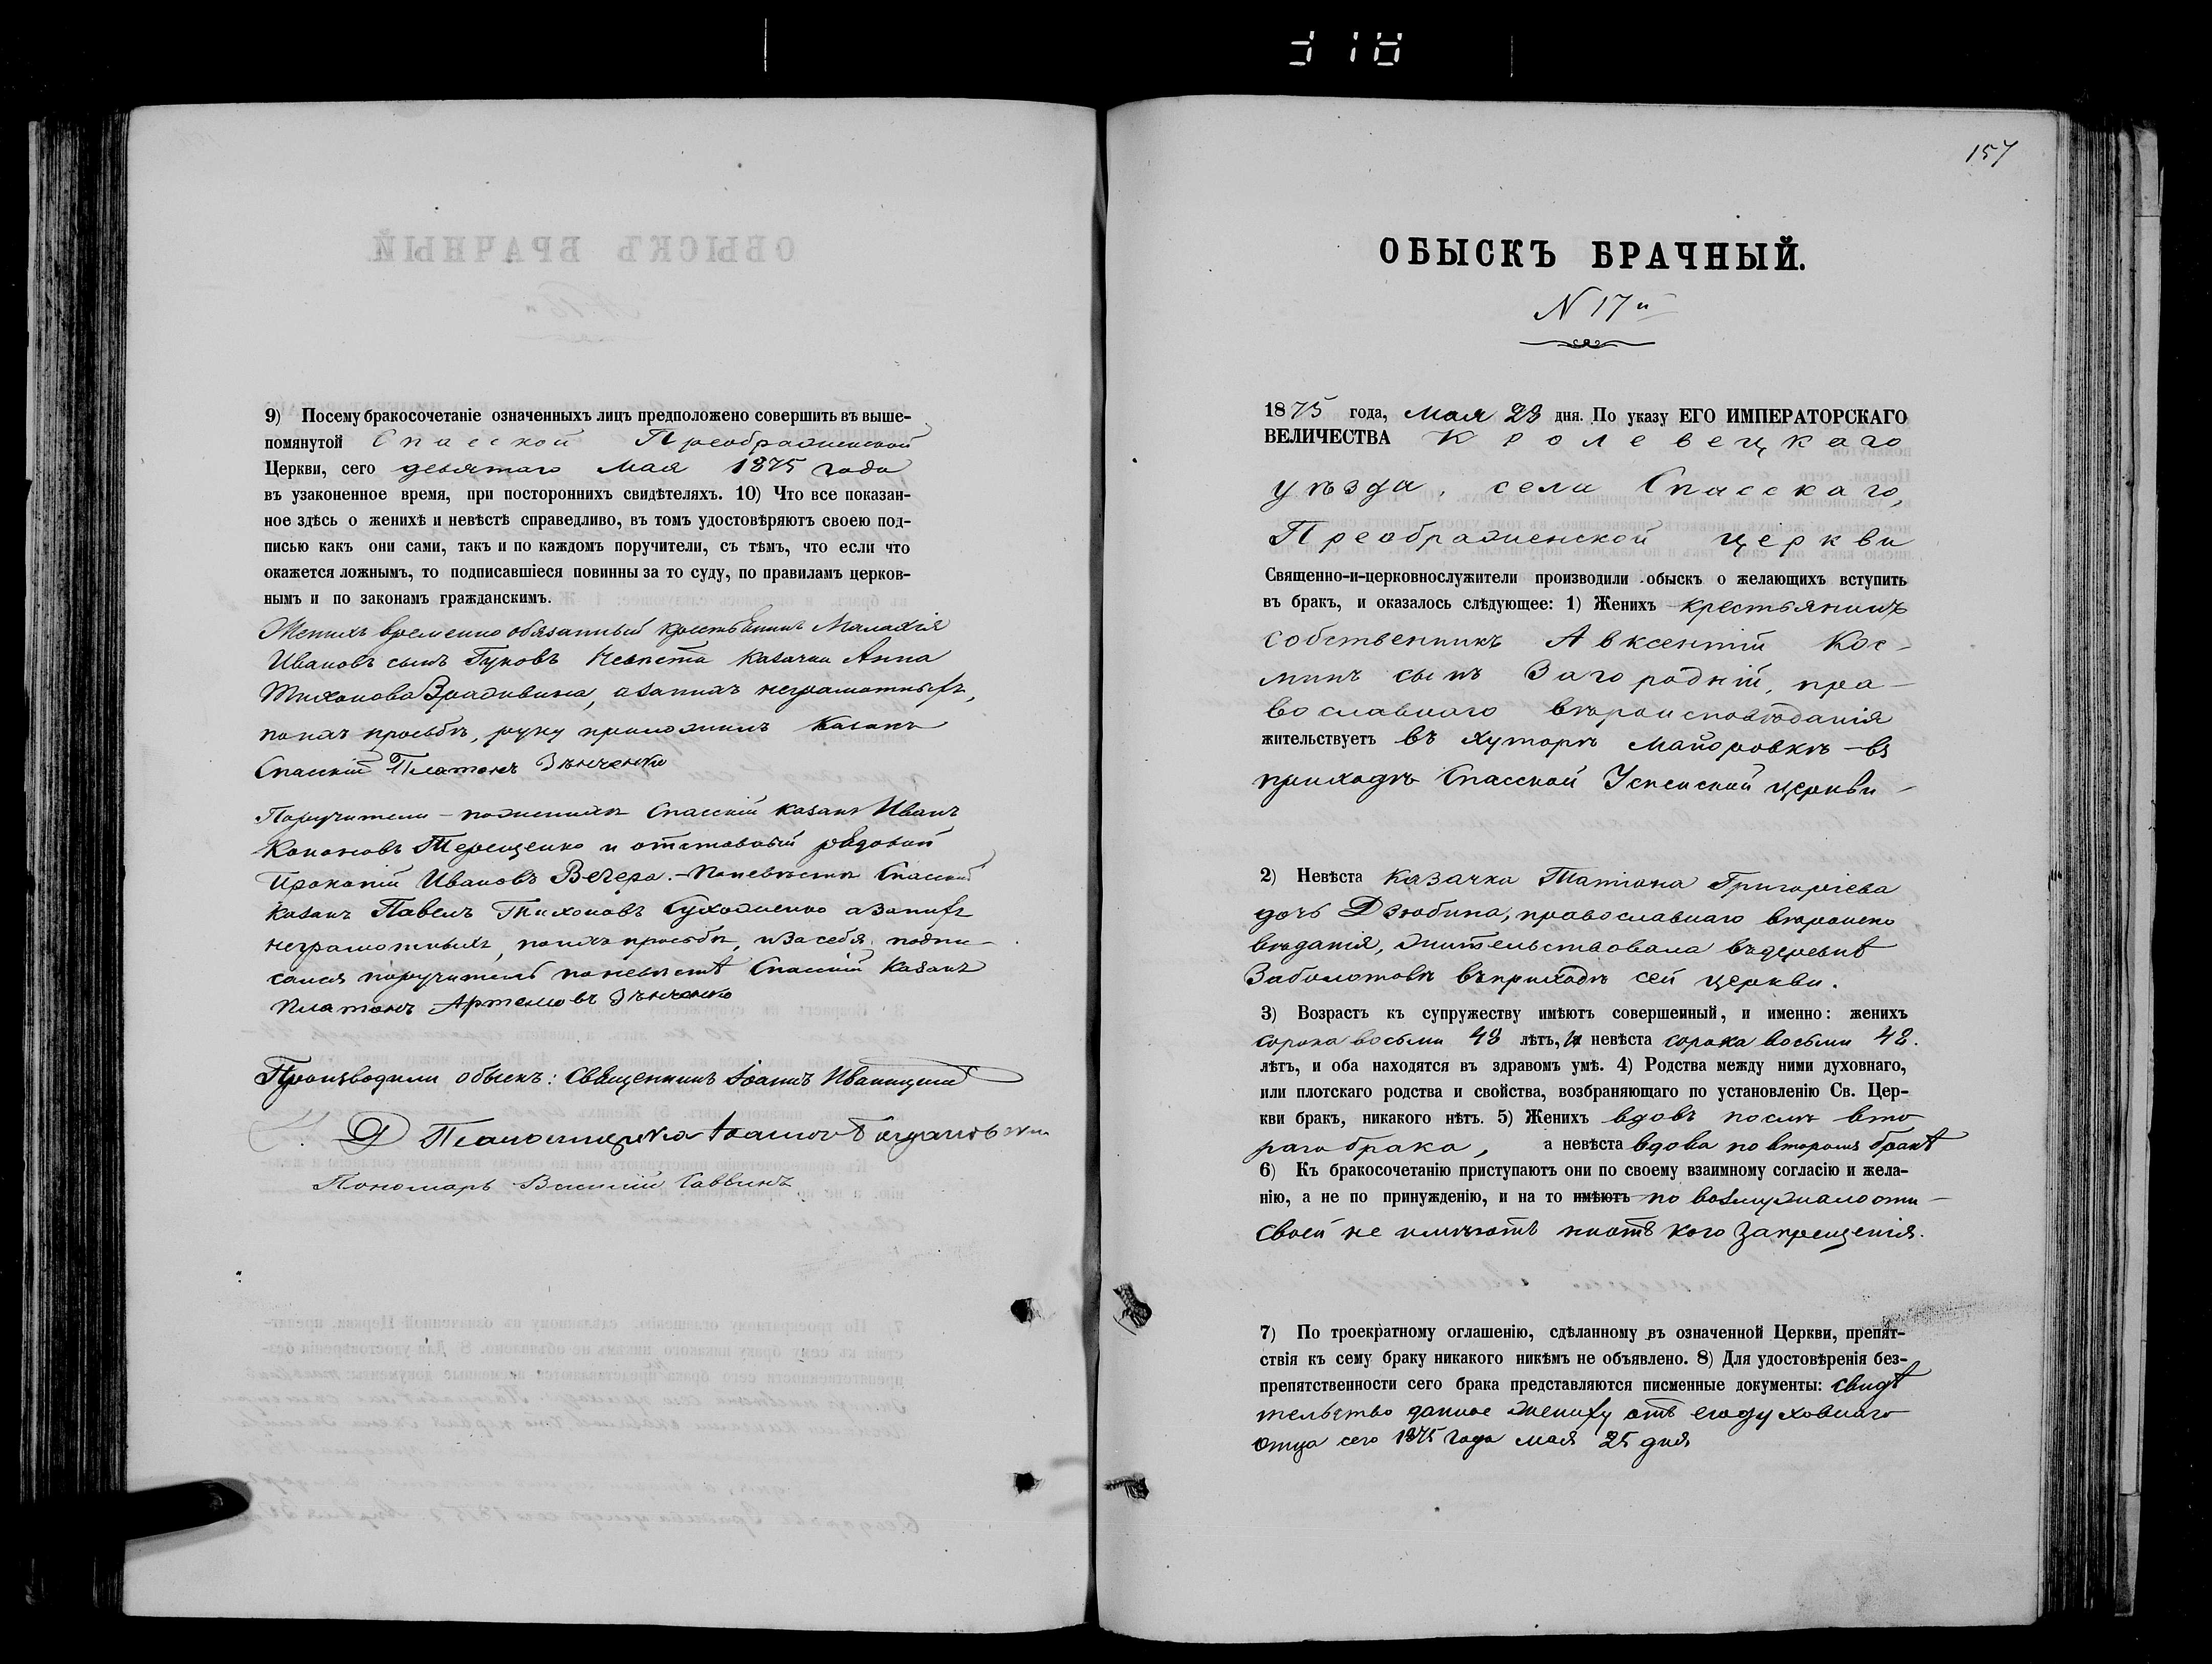 310
9) Посему бракосочетаніе означенныхъ лицъ предположено совершить въ выше-
помянутой Спасской Преображенской
Церкви, сего девятаго мая 1875 года
въ узаконенное время, при постороннихъ свидѣтеляхъ. 10) Что все показан-
ное здѣсь о женихѣ и невѣстѣ справедливо, въ томъ удостовѣряютъ своею под-
писью какъ они сами, такъ и по каждомъ поручители, съ тѣмъ, что если что
окажется ложнымъ, то подписавшіеся повинны за то суду, по правиламъ церков-
нымъ и по законамъ гражданскимъ.
Женихъ временно обязанный крестьянинъ Малахія
Ивановъ сынъ Гуковъ Невѣста казачка Анна
Тихонова Вражвина, азанихъ неграмотныхъ,
поихъ просьбѣ, руку приложилъ казакъ
Спаскій Платонъ Зѣнченко
Поручители – поженихѣ Спаскій казакъ Иванъ
Кононовъ Терещенко и отставный рядовой
Прокопій Ивановъ Вечера. – Поневѣстѣ Спаскій
казакъ Павелъ Тихоновъ Сухоженко азаних
неграмотныхъ, поихъ просьбѣ, изасебя подпи-
сался поручитель поневѣстѣ Спаскій казакъ
Платонъ Артемовъ Зѣнченко
Производили обыскъ: Священникъ Іоаннъ
Д Псаломщика Іоаннъ
Пономарь Василій Саввинъ
157
ОБЫСКЪ БРАЧНЫЙ.
N 17й
1875 года, мая 28 дня. По указу ЕГО ИМПЕРАТОРСКАГО
ВЕЛИЧЕСТВА Кролевецкаго
уѣзда, села Спасскаго,
Преображенской церкви
Священно-и-церковнослужители производили обыскъ о желающихъ вступить
въ бракъ, и оказалось слѣдующее: 1) Женихъ крестьянинъ
собственникъ Авксентій Кос-
минъ сынъ Загородній, пра-
вославнаго вѣроисповѣданія
жительствуетъ въ хуторѣ Майоровкѣ – въ
приходѣ Спасской Успенской церкви –
2) Невѣста казачка Татіана Григоріева
дочь Дзюбина, православнаго вѣроиспо
вѣданія, жительствовала въдеревнѣ
Заболотовѣ въприходѣ сей церкви.
3) Возрастъ къ супружеству имѣютъ совершенный, и именно: женихъ
сорока восьми 48 лѣтъ, и невѣста сорока восьми 48.
лѣтъ, и оба находятся въ здравомъ умѣ. 4) Родства между ними духовнаго,
или плотскаго родства и свойства, возбраняющаго по установленію Св. Цер-
кви бракъ, никакого нѣтъ. 5) Женихъ вдовъ послѣ вто
раго брака, а невѣста вдова по второмъ бракѣ
6) Къ бракосочетанію приступаютъ они по своему взаимному согласію и жела-
нію, а не по принужденію, и на то имѣютъ по возмужалости –
своей не имѣютъ ниотъ кого запрещенія.
7) По троекратному оглашенію, сдѣланному въ означенной Церкви, препят-
ствія къ сему браку никакого никѣмъ не объявлено. 8) Для удостовѣренія без-
препятственности сего брака представляются писменные документы: свидѣ
тельство данное жениху отъ егодуховнаго
отца сего 1875 года мая 25 дня